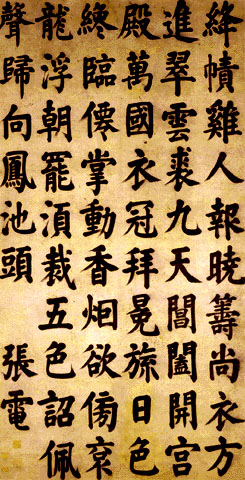 絳幘雞人報曉籌尚衣方
進翠雲裘九天閶闔開宮
殿萬國衣冠拜冕旒日色
終臨僊掌動香烟欲傍袞
龍浮朝罷須裁五色詔佩
聲歸向鳳池頭 張電